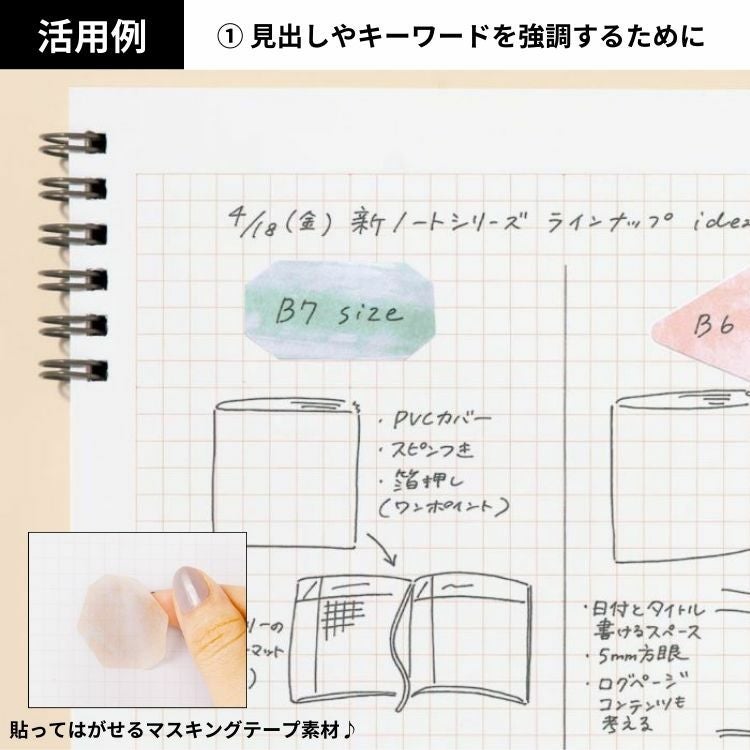 活用例
① 見出しやキーワードを強調するために
4/18(金) 新ノートシリーズ ラインナップ idea
B7 size
B6
・PVCカバー
・スピンつき
・箔押し
(ワンポイント)
・日付とタイトル
書けるスペース
・5mm方眼
・ログページ
コンテンツも
考える
リーの
マット
)
貼ってはがせるマスキングテープ素材♪